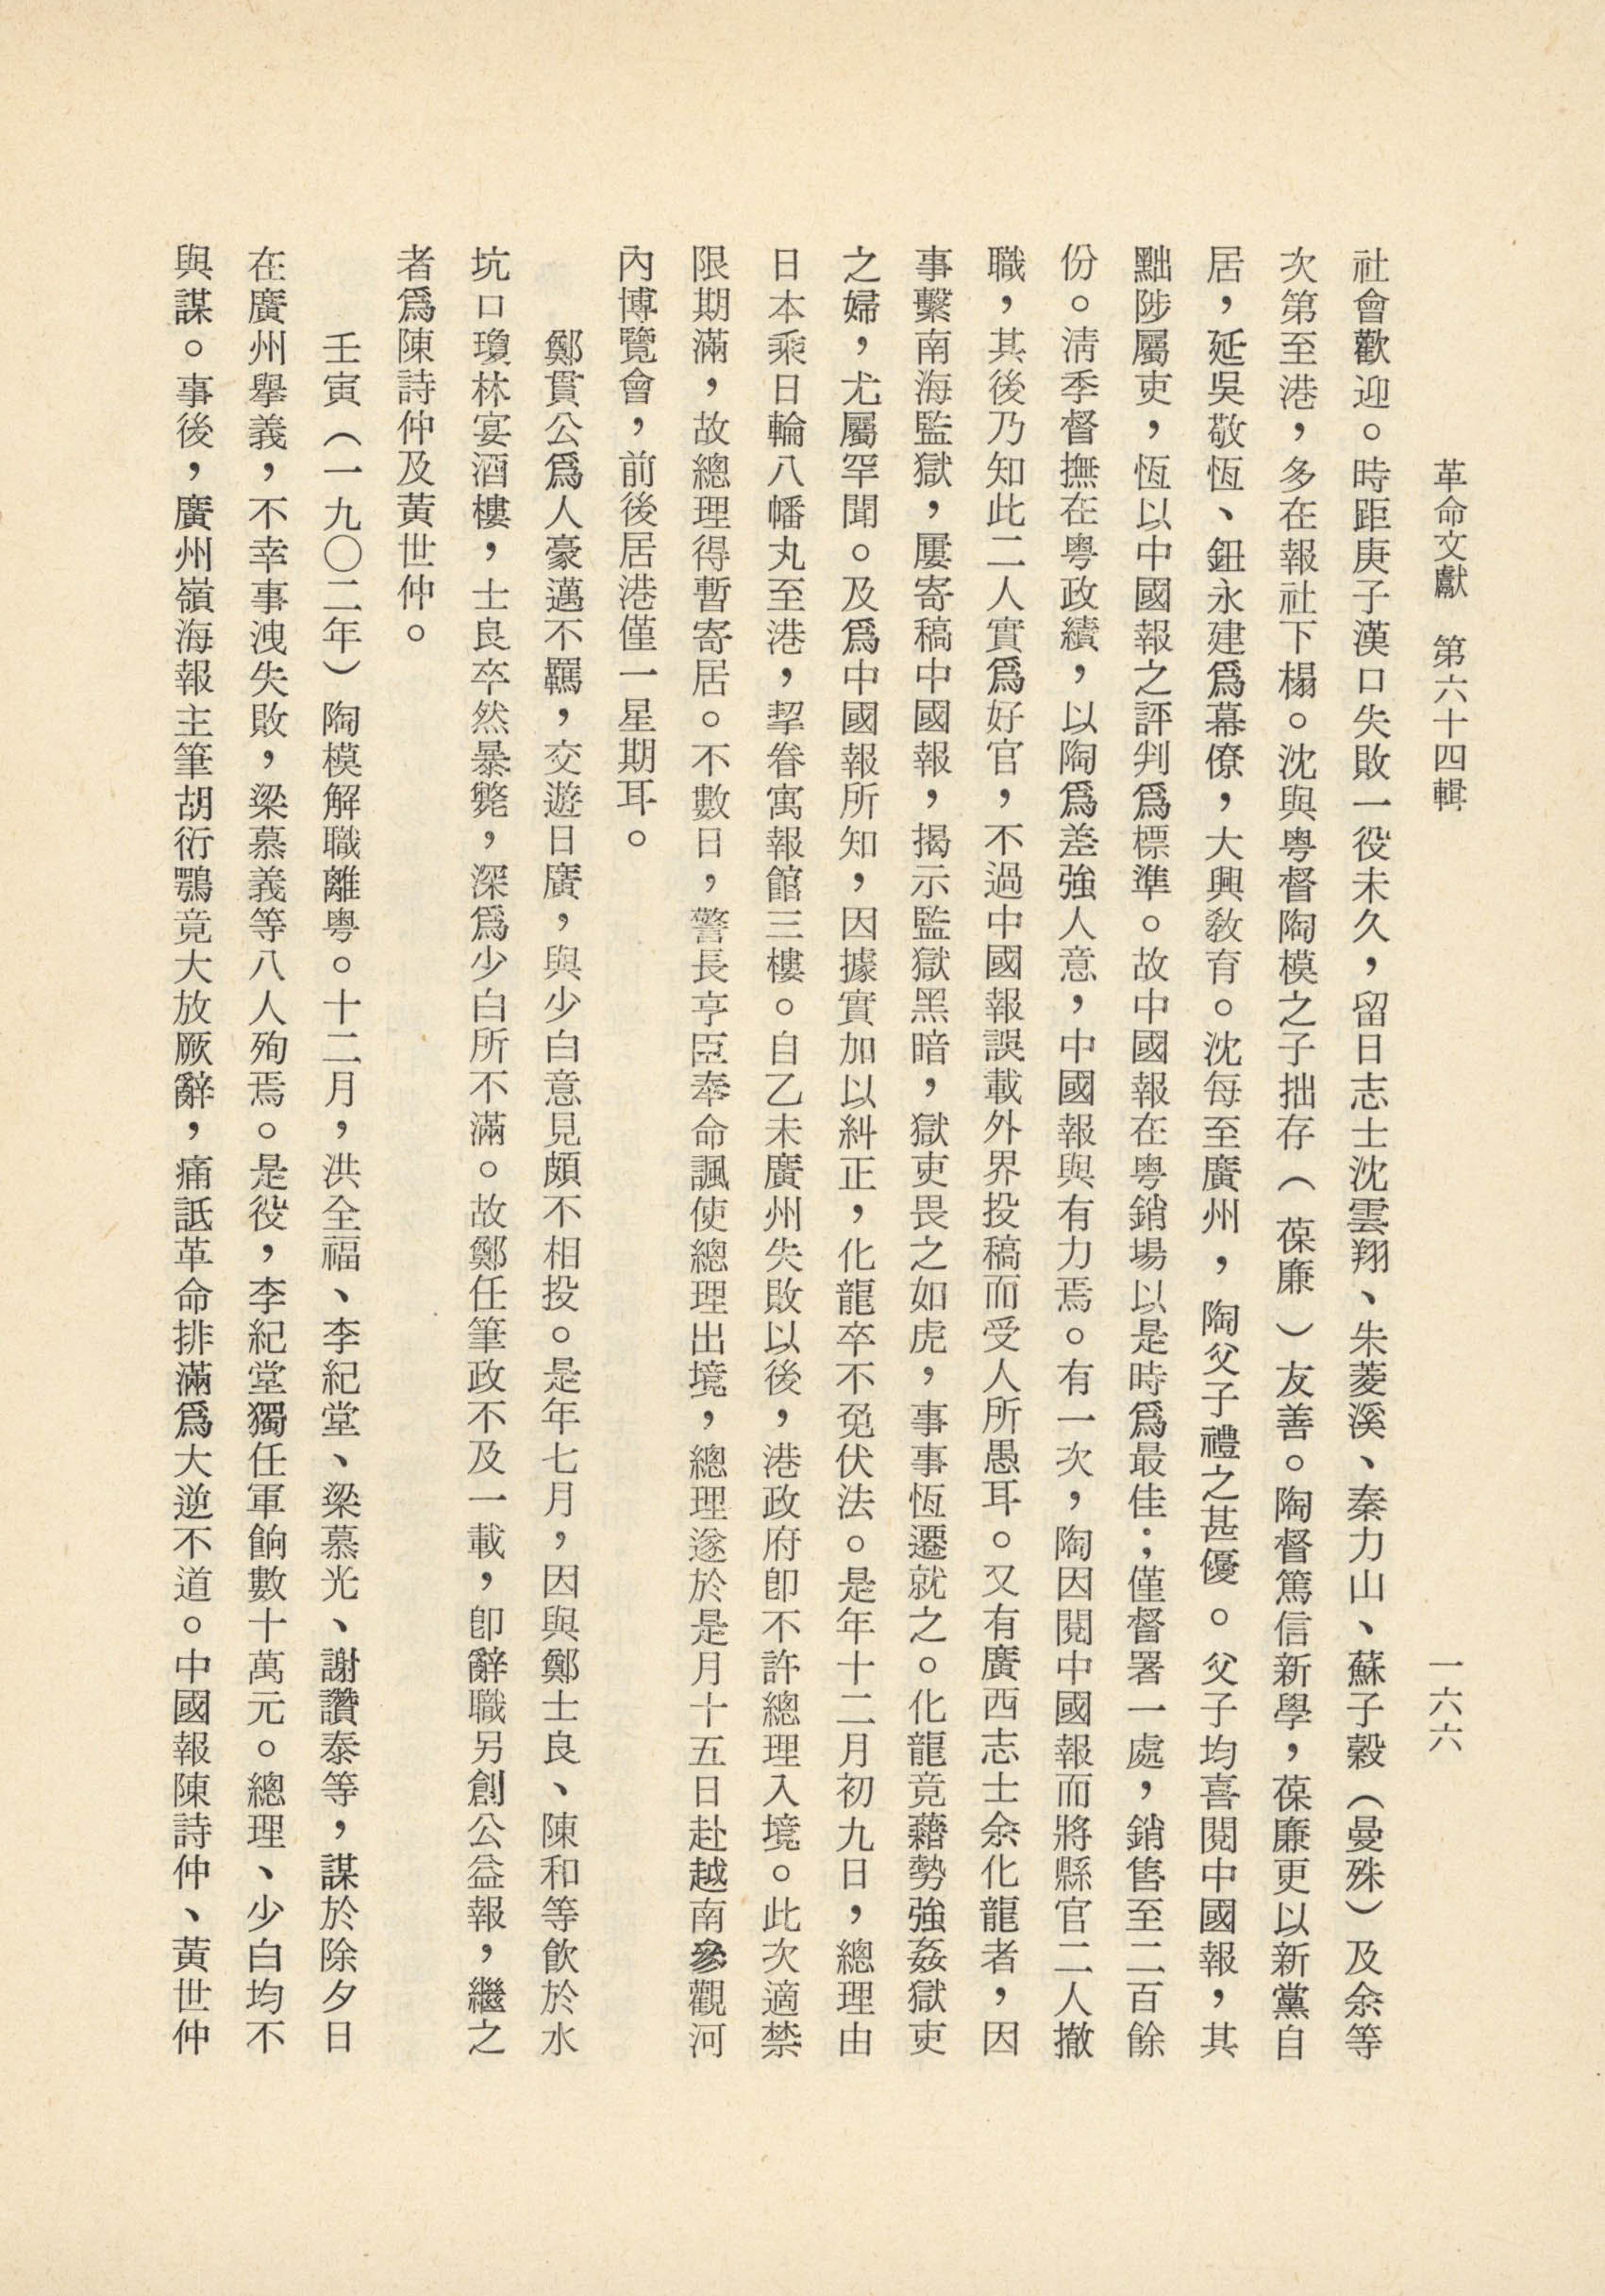 革命文獻　第六十四輯
一六六
社會歡迎。時距庚子漢口失敗一役未久，留日志士沈雲翔、朱菱溪、秦力山、蘇子穀（曼殊）及余等
次第至港，多在報社下榻。沈與粤督陶模之子拙存（葆廉）友善。陶督篤信新學，葆廉更以新黨自
居，延吳敬恆、鈕永建爲幕僚，大興敎育。沈每至廣州，陶父子禮之甚優。父子均喜閱中國報，其
黜陟屬吏，恆以中國報之評判爲標準。故中國報在粤銷場以是時爲最佳；僅督署一處，銷售至二百餘
份。淸季督撫在粤政績，以陶爲差強人意，中國報與有力焉。有一次，陶因閱中國報而將縣官二人撤
職，其後乃知此二人實爲好官，不過中國報誤載外界投稿而受人所愚耳。又有廣西志士余化龍者，因
事繫南海監獄，屢寄稿中國報，揭示監獄黑暗，獄吏畏之如虎，事事恆遷就之。化龍竟藉勢強姦獄吏
之婦，尤屬罕聞。及爲中國報所知，因據實加以糾正，化龍卒不免伏法。是年十二月初九日，總理由
日本乘日輪八幡丸至港，挈眷寓報館三樓。自乙未廣州失敗以後，港政府卽不許總理入境。此次適禁
限期滿，故總理得暫寄居。不數日，警長亨臣奉命諷使總理出境，總理遂於是月十五日赴越南參觀河
內博覽會，前後居港僅一星期耳。
鄭貫公爲人豪邁不羈，交遊日廣，與少白意見頗不相投。是年七月，因與鄭士良、陳和等飮於水
坑口瓊林宴酒樓，士良卒然暴斃，深爲少白所不滿。故鄭任筆政不及一載，卽辭職另創公益報，繼之
者爲陳詩仲及黃世仲。
壬寅（一九〇二年）陶模解職離粤。十二月，洪全福、李紀堂、梁慕光、謝讚泰等，謀於除夕日
在廣州擧義，不幸事洩失敗，梁慕義等八人殉焉。是役，李紀堂獨任軍餉數十萬元。總理、少白均不
與謀。事後，廣州嶺海報主筆胡衍鶚竟大放厥辭，痛詆革命排滿爲大逆不道。中國報陳詩仲、黃世仲